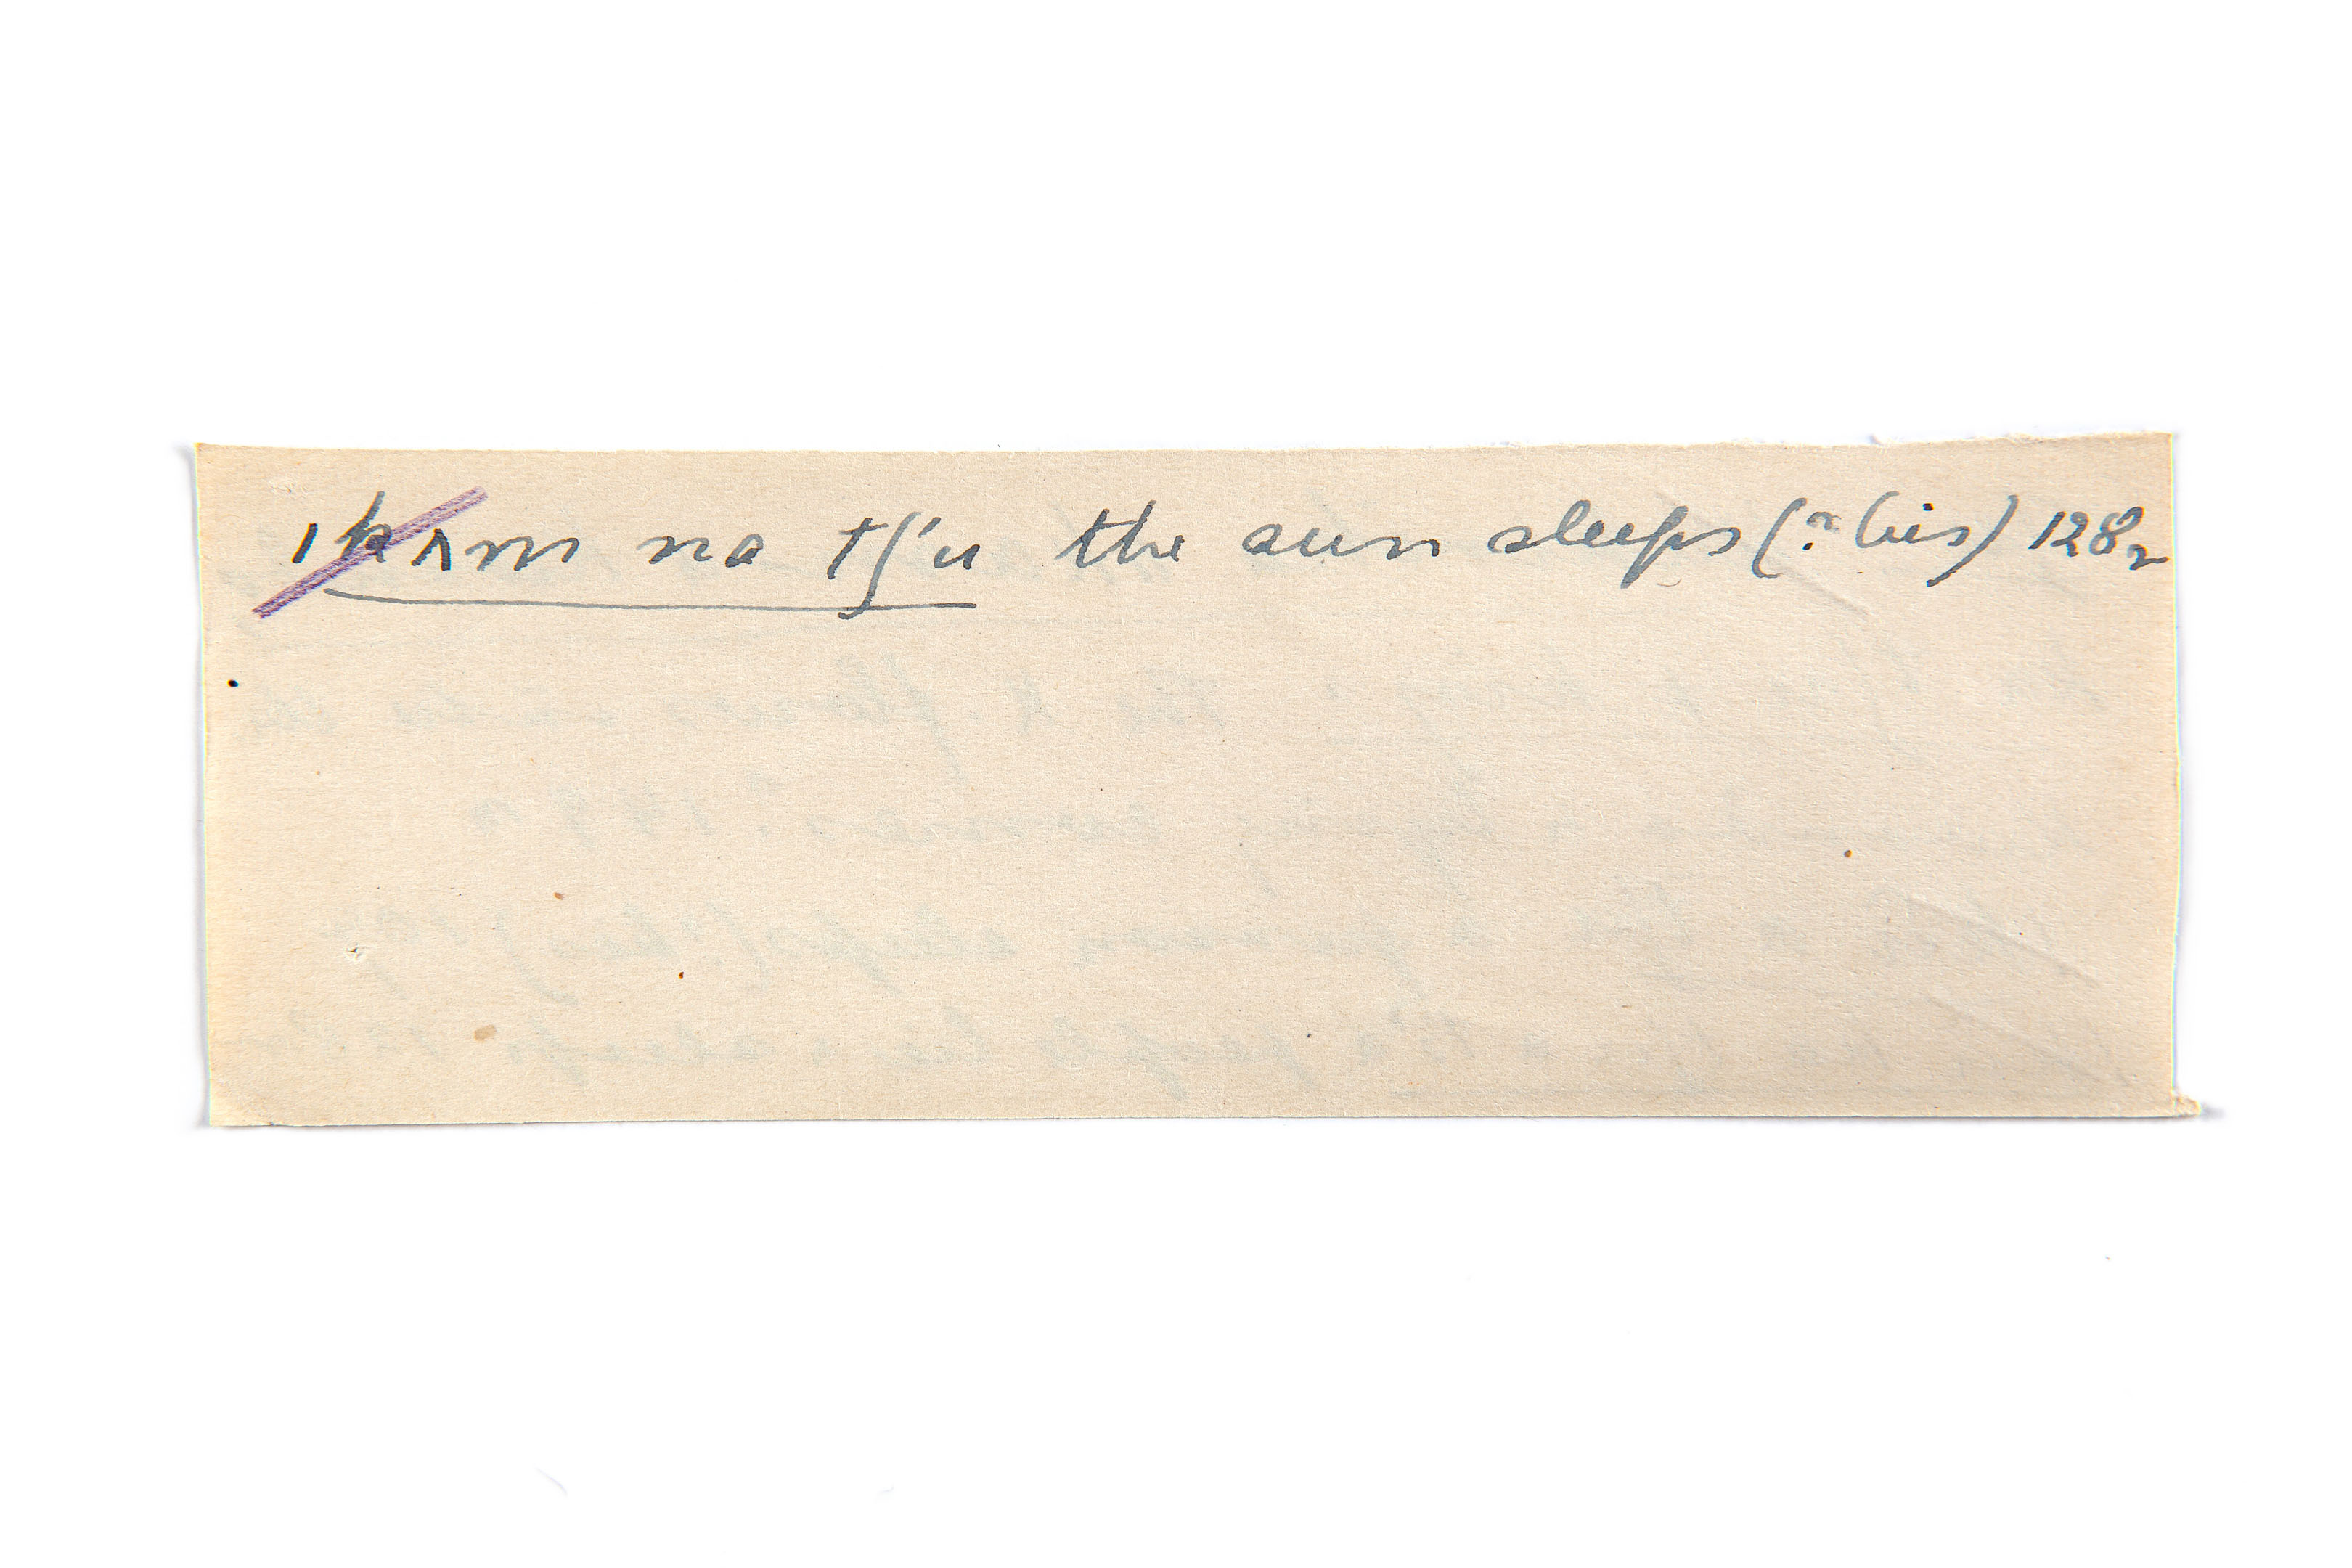 ıpʌm na tʃ'u the sun sleeps (? lies) 128₂